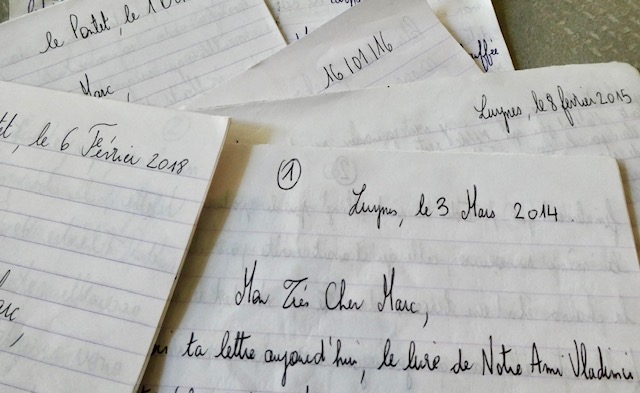 le Pontet, le 1
Marc,
16/01/16
Luynes, le 8 février 2015
le 6 Février 2018
①
Luynes, le 3 Mars 2014.
Mon Très Cher Marc,
ta lettre aujourd'hui, le livre de Notre Ami Vladimir